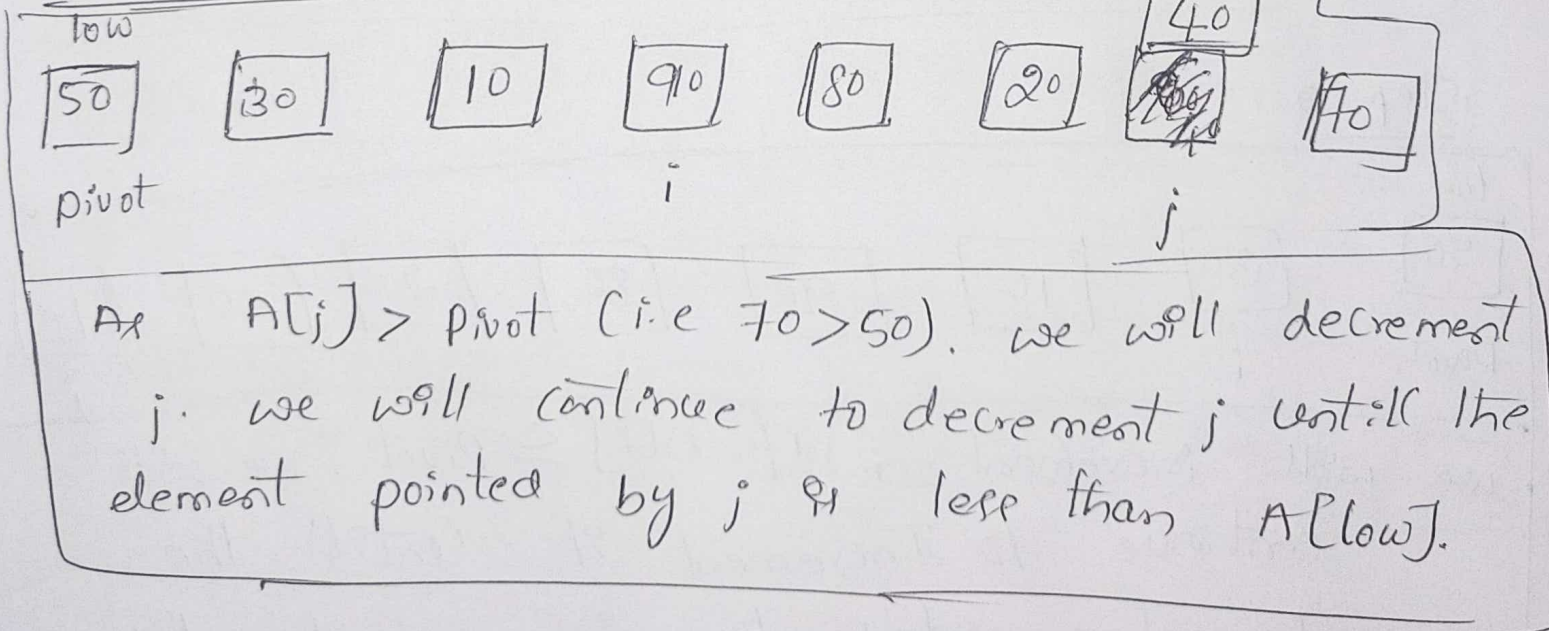 low
40
50 30 10 90 80 20 70
pivot i j
As A[j] > pivot (i.e 70 > 50). we will decrement
j. we will continue to decrement j untill the
element pointed by j is less than A[low].